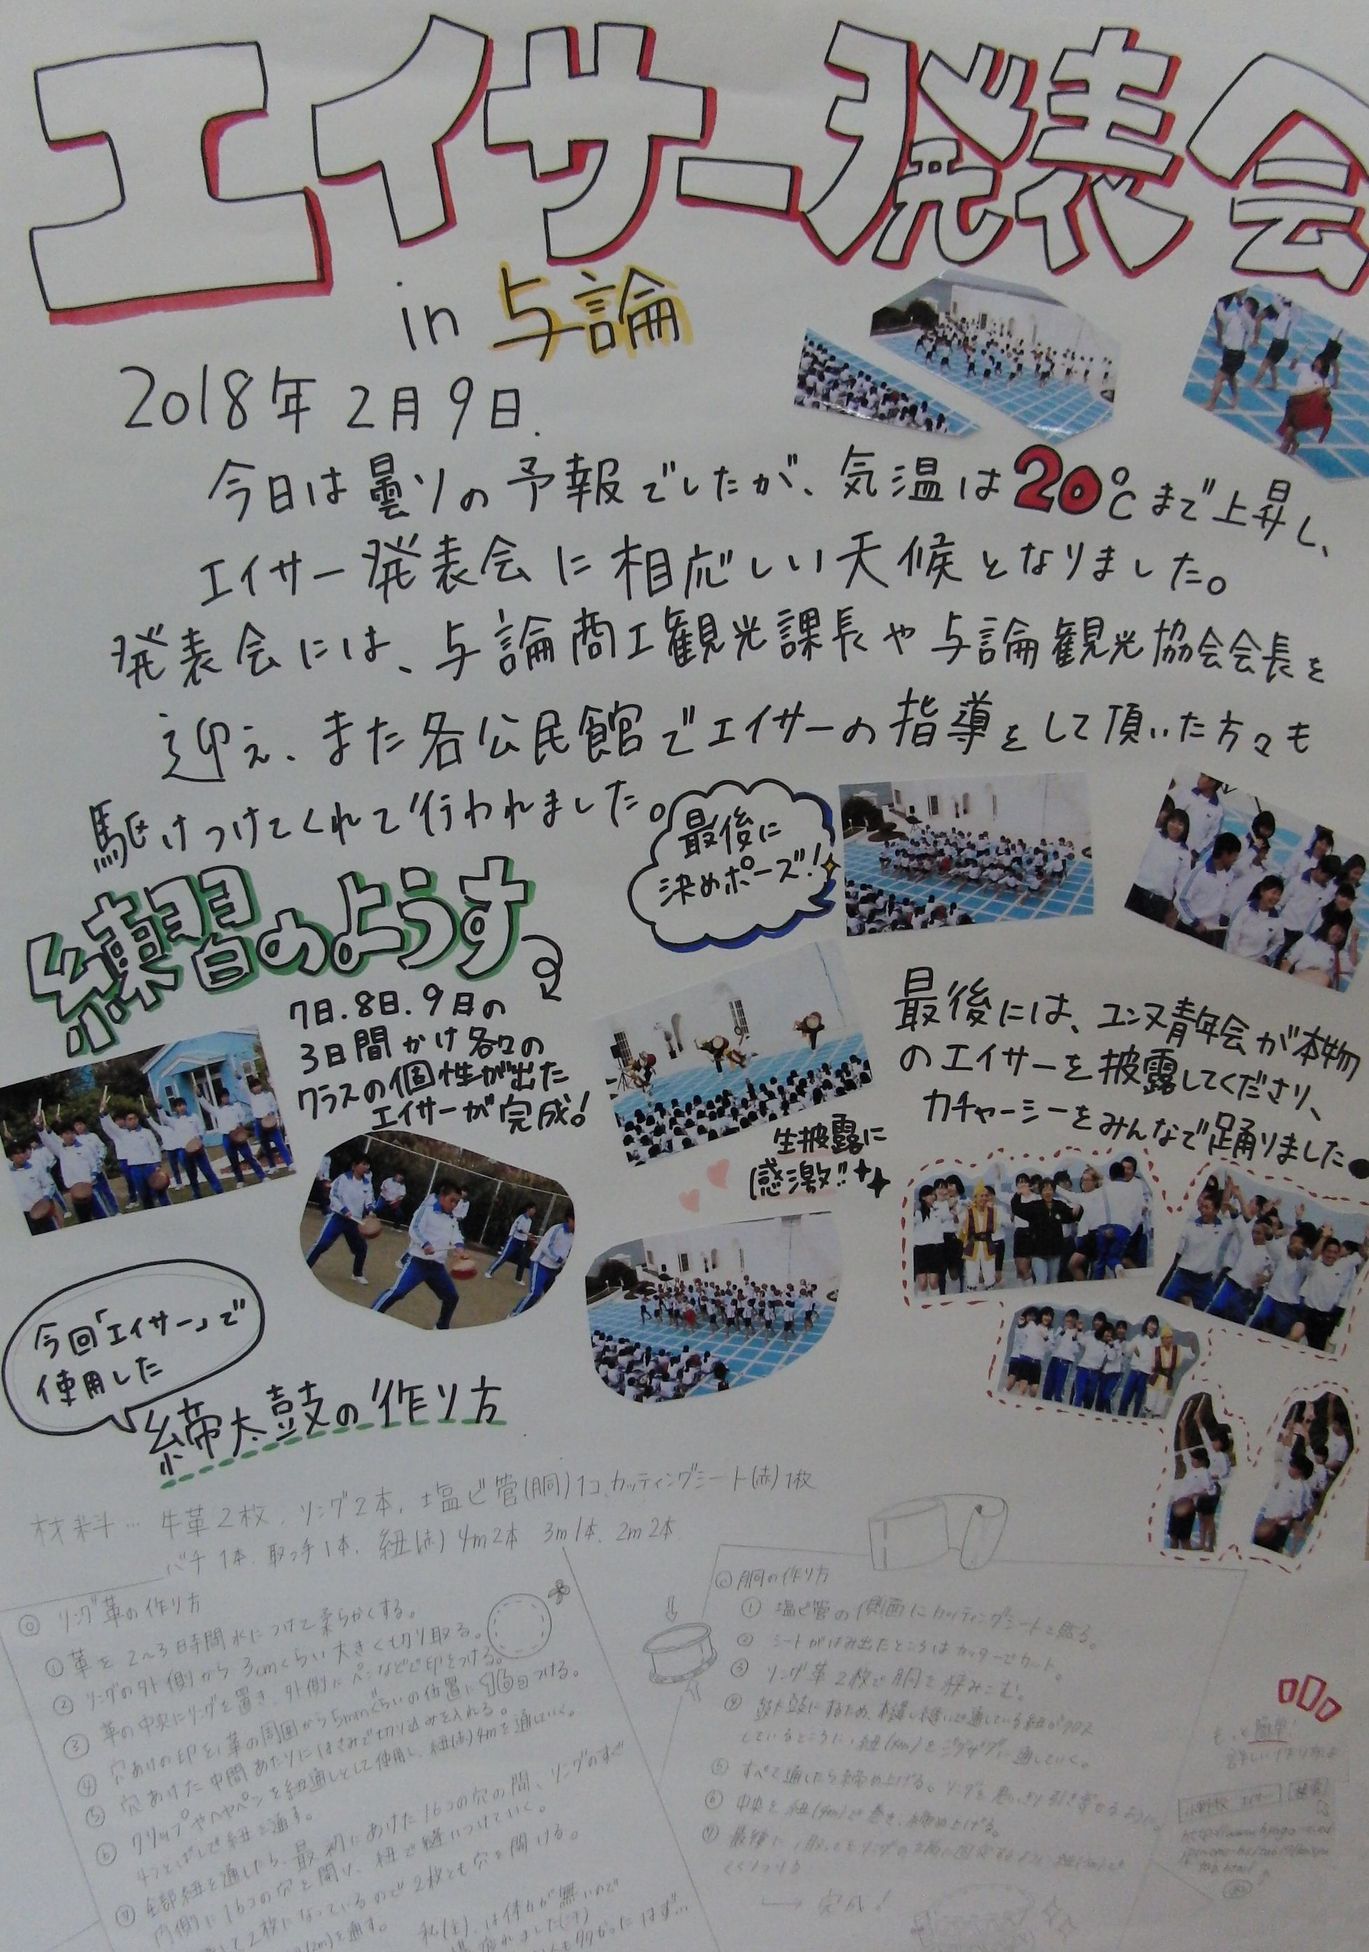 エイサー発表会
in 与論
2018年2月9日.
今日は曇りの予報でしたが、気温は20℃まで上昇し、
エイサー発表会に相応しい天候となりました。
発表会には、与論商工観光課長や与論観光協会会長を
迎え、また各公民館でエイサーの指導をして頂いた方々も
駆けつけてくれて行われました。
最後に
決めポーズ!
練習のようす
7日.8日.9日の
3日間かけ各々の
クラスの個性が出た
エイサーが完成!
最後には、ユンヌ青年会が本物
のエイサーを披露してくださり、
カチャーシーをみんなで踊りました
生披露に
感激!!
今回「エイサー」で
使用した
締太鼓の作り方
材料… 牛革2枚、リング2本、塩ビ管(胴)1コ、カッティングシート(赤)1枚
バチ1本、取っ手1本、紐(赤)4m2本 3m1本、2m2本
◎リング革の作り方
①革を2~3時間水につけて柔らかくする。
②リングの外側から3cmくらい大きく切り取る。
③革の中央にリングを置き、外側にペンなどで印をつける。
④穴あけの印を、革の周囲から5mmぐらいの位置に16コつける。
⑤穴あけた中間あたりにはさみで切り込みを入れる。
⑥クリップやヘヤピンを紐通しとして使用し、紐(赤)4mを通していく。
4つとばしで紐を通す。
全部紐を通したら、最初にあけた16コの穴の間、リングのすぐ
内側に16コの穴を開け、紐で縫いつけていく。
2枚になっているので2枚とも穴を開ける。
◎胴の作り方
①塩ビ管の側面にカッティングシートを貼る。
②シートがはみ出たところはカッターでカット。
③リング革2枚で胴を挟みこむ。
④
しているところに紐(4m)をジグザグに通していく。
⑤すべて通したら締め上げる。
⑥中央を紐(4m)で巻き、締め上げる。
⑦最後に
→ 完成!